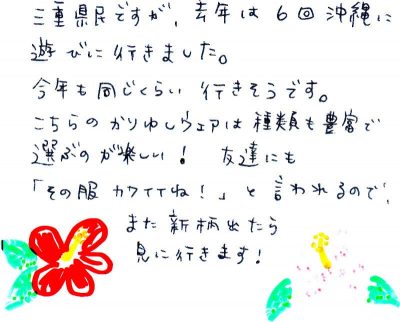 三重県民ですが、去年は6回沖縄に
遊びに行きました。
今年も同じくらい行きそうです。
こちらのかりゆしウェアは種類も豊富で
選ぶのが楽しい! 友達にも
「その服カワイイね!」と言われるので、
また新柄出たら
見に行きます!